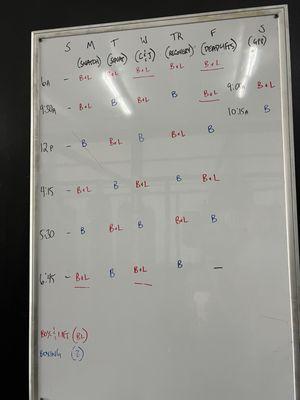 S M T W TR F S
(SNATCH) (SQUAT) (C&J) (RECOVERY) (DEADLIFTS) (GPP)
6A - B+L B+L B+L B+L B+L 9:00A B+L
9:30A - B+L B B+L B B+L 10:15A B
12P - B B+L B B+L B
4:15 - B+L B B+L B B+L
5:30 - B B+L B B+L B
6:45 - B+L B B+L B -
BOX & LIFT (BL)
BOXING